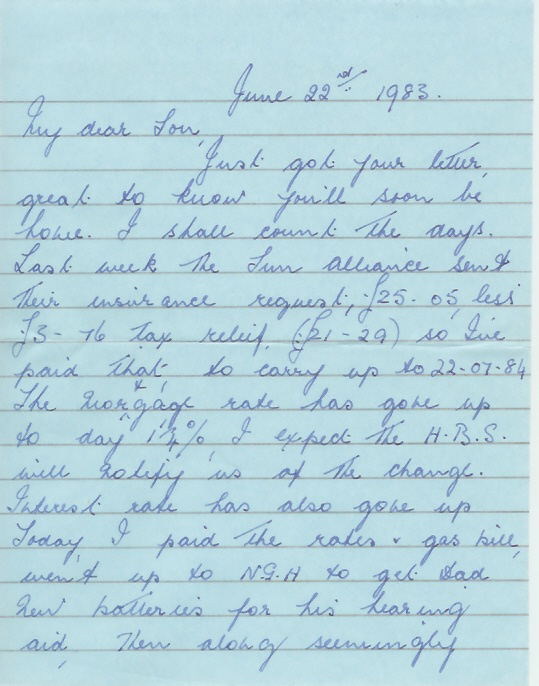 June 22nd 1983.
My dear Son,
Just got your letter,
great to know you'll soon be
home. I shall count the days.
Last week the Sun Alliance sent
their insurance request, £25-05, less
£3-76 tax releif, (£21-29) so I've
paid that, to carry up to 22-07-84
The Morgtage rate has gone up
to day 1¼%, I expect the H.B.S.
will notify us of the change.
Interest rate has also gone up
Today I paid the rates & gas bill,
went up to N.G.H to get Dad
new batteries for his hearing
aid, then along seemingly